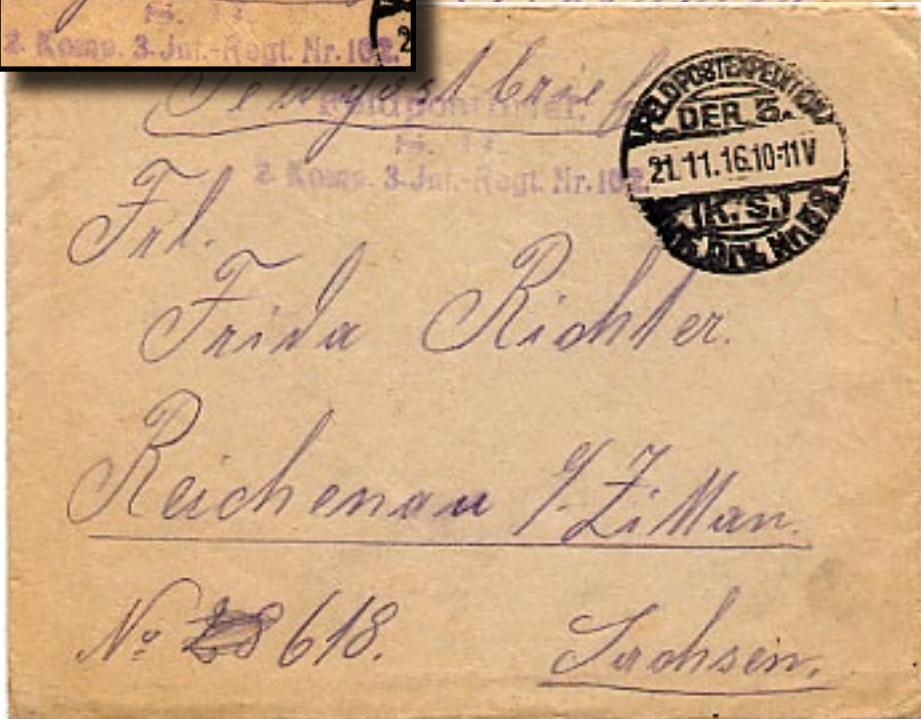 2. Komp. 3. Inf.-Regt. Nr. 102.
Feldpostbrief
Feldpostbrief.
2. Komp. 3. Inf.-Regt. Nr. 102.
FELDPOSTEXPEDITION
DER 3.
21.11.16.10-11V
(K.S.)
INF. DIV. Nr.
Frl.
Frida Richter.
Reichenau b/Zittau.
No 618.
Sachsen.